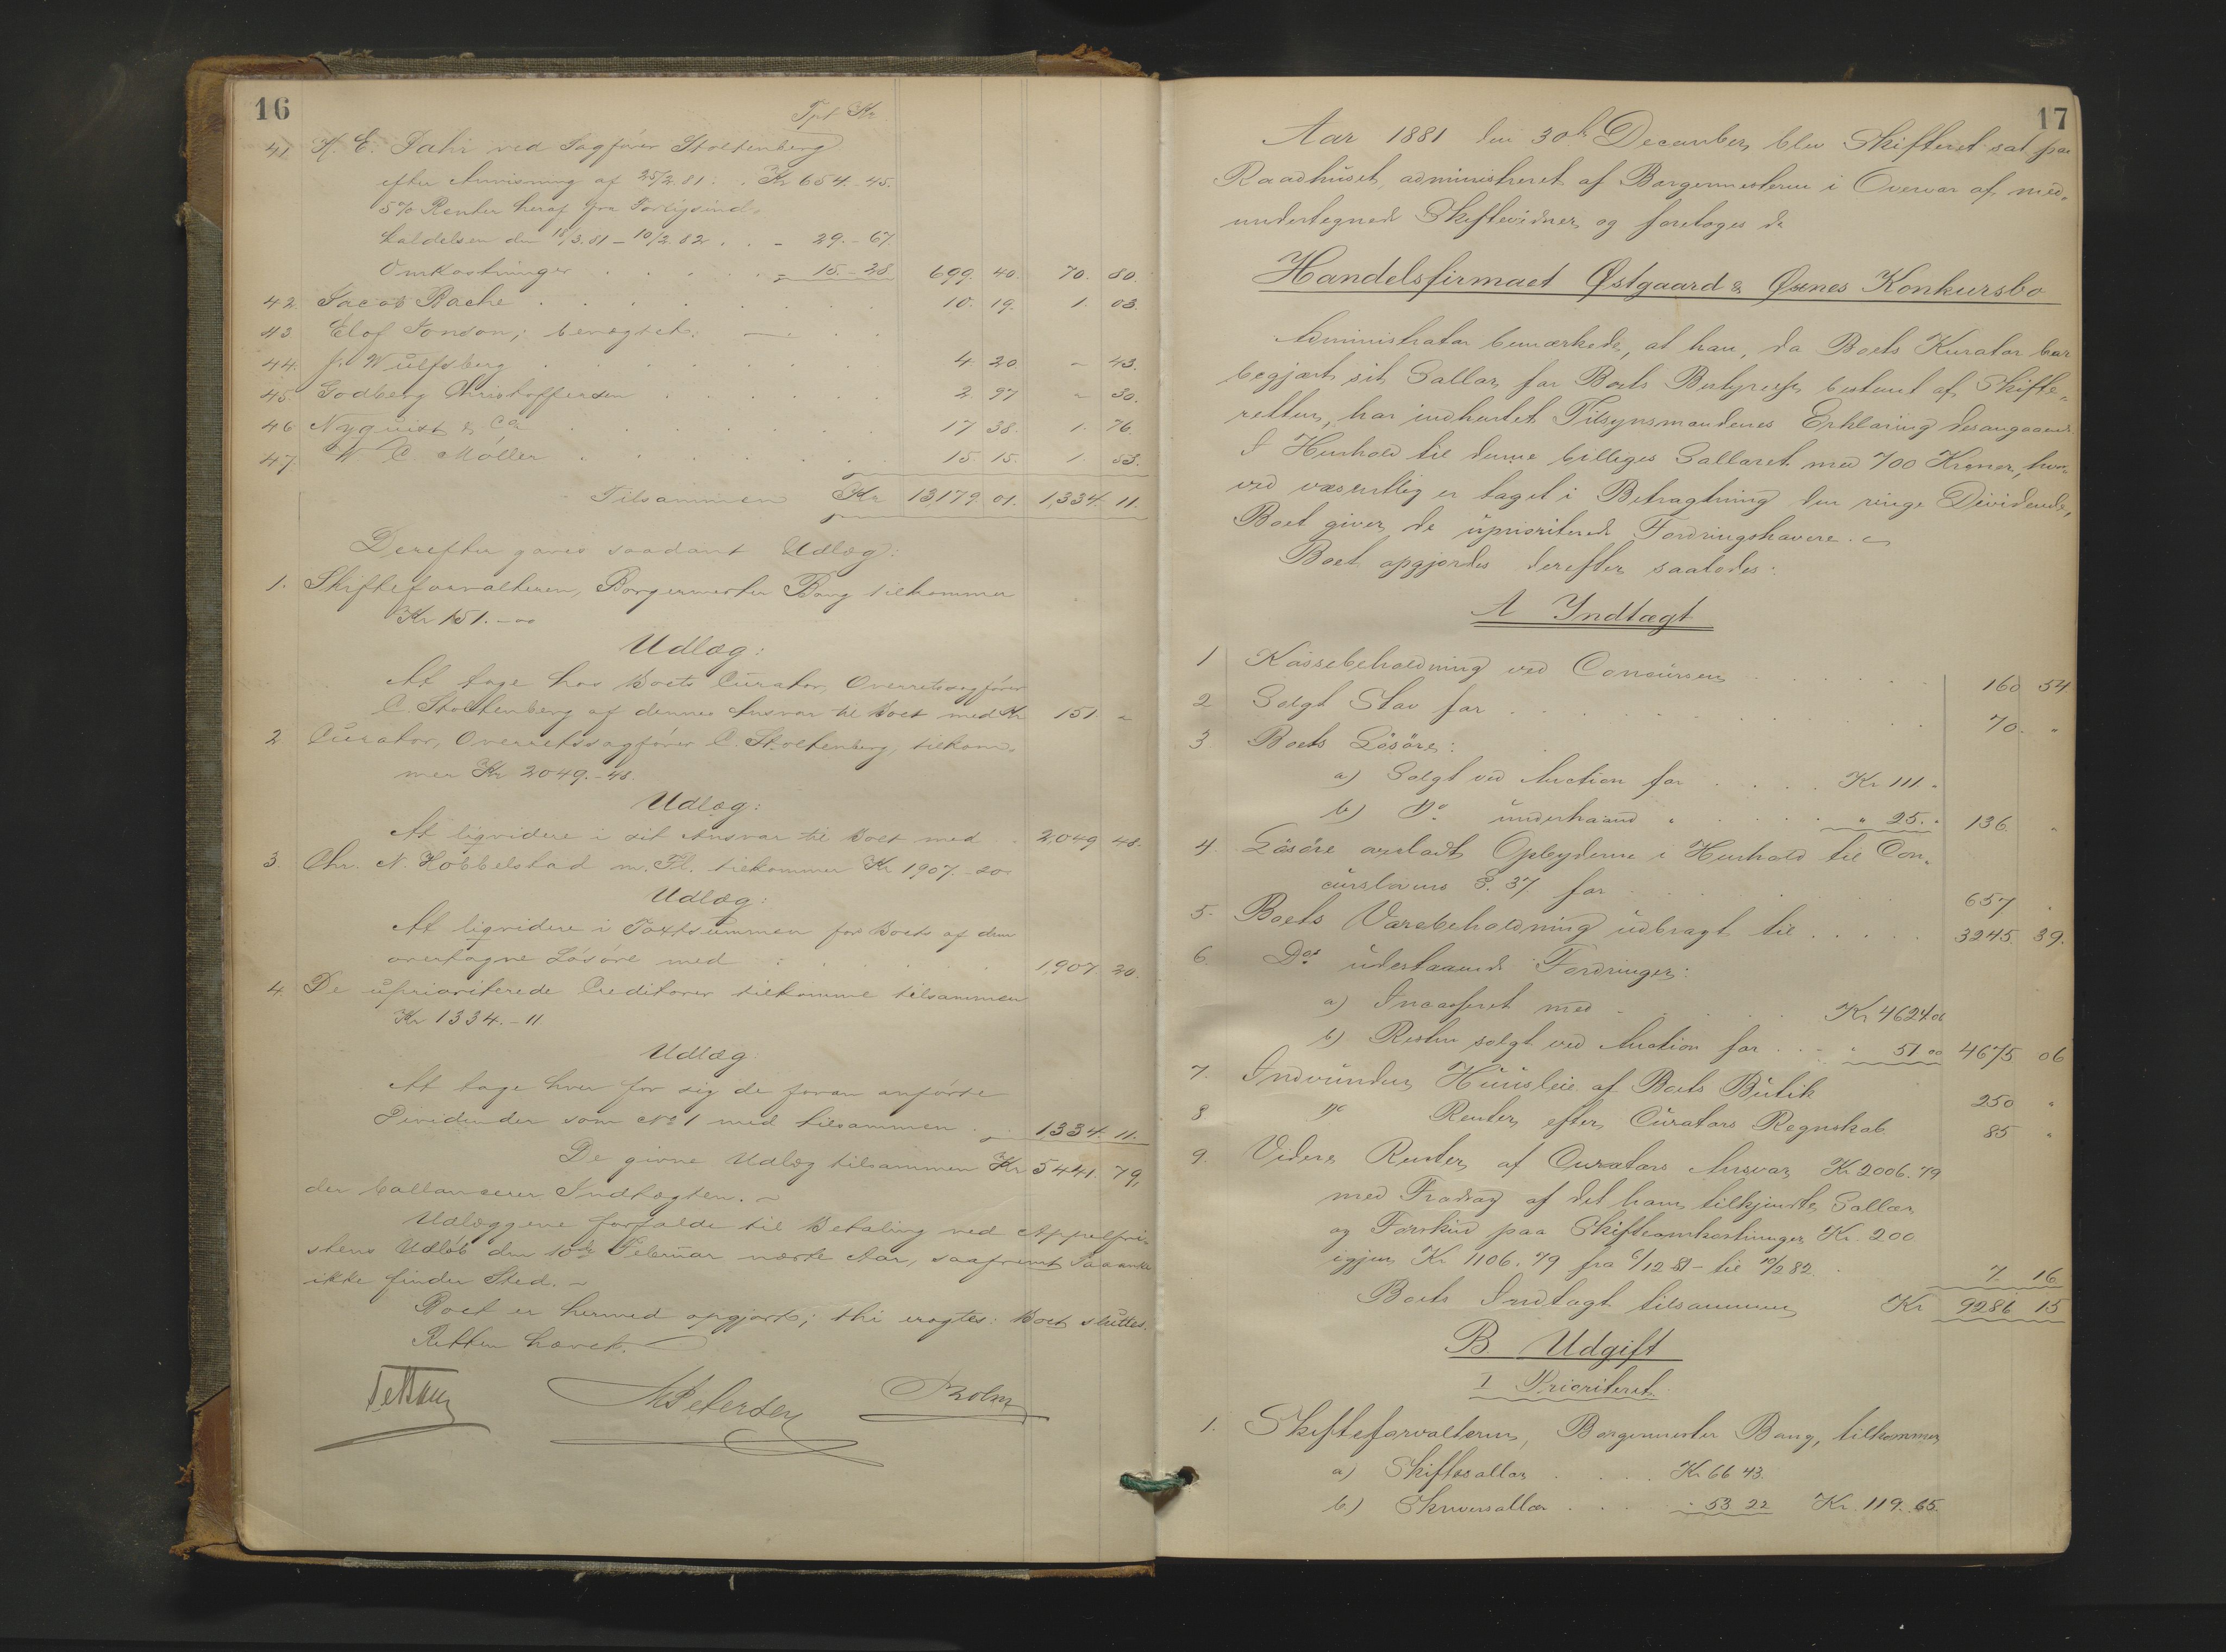 16
Tpt Kr
41. H. E. Dahr ved Sagfører Stoltenberg
efter Anvisning af 25/2.81: . Kr 654.-45.
5% Renter heraf fra Forligsind-
kaldelsen den 18/3.81 - 10/2.82 . . - 29.-67.
Omkostninger . . . . . - 15.-28 699. 40. 70. 80.
42. Jacob Rache . . . . . . 10. 19. 1. 03.
43 Elof Jonson; benægtet: — . .
44. Fr. Wulfsberg . . . . . . 4. 20 - 43.
45. Godberg Christoffersen . . . . . . 2. 97 - 30.
46 Nyquist & Co . . . . . . 17 38. 1. 76.
47. W. C. Møller . . . . . . 15. 15. 1. 53.
Tilsammen Kr 13,179. 01. 1,334. 11.
Derefter gaves saadant Udlæg:
1. Skifteforvalteren, Borgermester Bang tilkommer
Kr 151.-00
Udlæg:
At tage hos Boets Curator, Overretssagfører
C. Stoltenberg af dennes Ansvar til Boet med Kr 151. -
2. Curator, Overretssagfører C. Stoltenberg, tilkom-
mer Kr 2049.-48.
Udlæg:
At liqvidere i sit Ansvar til Boet med . 2,049 48.
3. Chr. N. Hobbelstad m. Fl. tilkommer Kr 1907.-20.
Udlæg:
At liqvidere i Taxtsummen for Boets af dem
overtagne Løsøre med : . . . . . 1,907 20.
4. De uprioriterede Creditorer tilkomme tilsammen
Kr 1334.-11
Udlæg:
At tage hver for sig de foran anførte
Dividender som No 1 med tilsammen . . 1,334. 11.
De givne Udlæg tilsammen Kr 5441. 79,
der ballancerer Indtægten. -
Udlæggene forfalde til Betaling ved Appelfri-
stens Udløb den 10de Februar næste Aar, saafremt Paaanke
ikke finder Sted. -
Boet er hermed opgjort; thi eragtes: Boet sluttes.
Retten hævet.
M Petersen
Holm
17
Aar 1881 den 30te December, blev Skifteret sat paa
Raadhuset, administreret af Borgermesteren i Overvær af med-
undertegnede Skiftevidner, og foretoges da
Handelsfirmaet Østgaard & Øxnes Konkursbo
Administrator bemærkede, at han, da Boets Kurator har
begjært sit Sallar for Boets Bestyrelse bestemt af Skifte-
retten, har indhentet Tilsynsmændenes Erklæring desangaaende.
I Henhold til denne billiges Sallaret med 700 Kroner, hvor-
ved væsentlig er taget i Betragtning den ringe Dividende,
Boet giver de uprioriterede Fordringshavere. -
Boet opgjordes derefter saaledes:
A Indtægt
1 Kassebeholdning ved Concursen . . . . . . 160 54
2 Solgt Stav for . . . . . . . 70. "
3 Boets Løsøre:
a) Solgt ved Auction for . . . . Kr 111 "
b) Do underhaand " . . . . " 25. " 136. "
4. Løsøre overladt Opbyderne i Henhold til Con-
curslovens §. 37 for . . . . . . 657 "
5. Boets Varebeholdning udbragt til . . . . . 3245. 39.
6. Dos udestaaende Fordringer:
a) Incasseret med . . . . . Kr 4624 06
b) Resten solgt ved Auction for . . - " 51 00 4675 06
7. Indvunden Huusleie af Boets Butik 250 "
8 Do Renter efter Curators Regnskab 85 "
9. Videre Renter af Curators Ansvar, Kr 2006.79
med Fradrag af det ham tilkjendte Sallar
og Forskud paa Skifteomkostninger, Kr. 200
igjen Kr 1106.79 fra 6/12 81 - til 10/2 82 . 7. 16
Boets Indtægt tilsammen Kr 9286 15
B. Udgift
I Prioriteret
1. Skifteforvalteren, Borgermester Bang, tilkommer
a) Skiftesallar . . . . Kr 66 43.
b) Skriversallar . . . - 53 22 Kr. 119. 65.